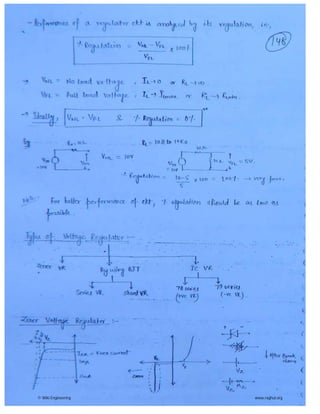 - Performance of a regulator ckt is analysed by its regulation, i.e.,
148
% Regulation = VNL - VFL / VFL × 100%
→ VNL = No load voltage ; IL → 0 or RL → ∞
VFL = Full load voltage ; IL → ILmax or RL → RLmin
→ Ideally, VNL = VFL & % Regulation = 0%
Eg
RL = 10Ω to 10KΩ
VNL = 10V
VFL = 5V
% Regulation = 10-5 / 5 × 100 = 100% → very poor.
Note: For better performance of ckt, % regulation should be as low as
possible.
Types of Voltage Regulator :-
Zener VR
By using BJT
IC VR
Series VR
Shunt VR
78 series
(+ve VR)
79 series
(-ve VR)
Zener Voltage Regulator :-
Knee current
After Break
down
VZ
© Wiki Engineering
www.raghul.org